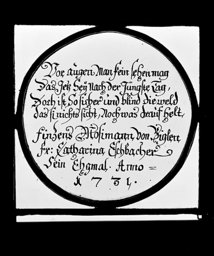 Vor augen Man fein sehen mag
Das Jetz Seÿ Nach der Jungste tag,
Doch ist So sicher und blind die welt
das si nichts sicht, Noch was drauf helt,
Hinzens Mosimann Von Biglen
fr: Catharina Eschbacher
Sein Ehgmal. Anno =
1731.